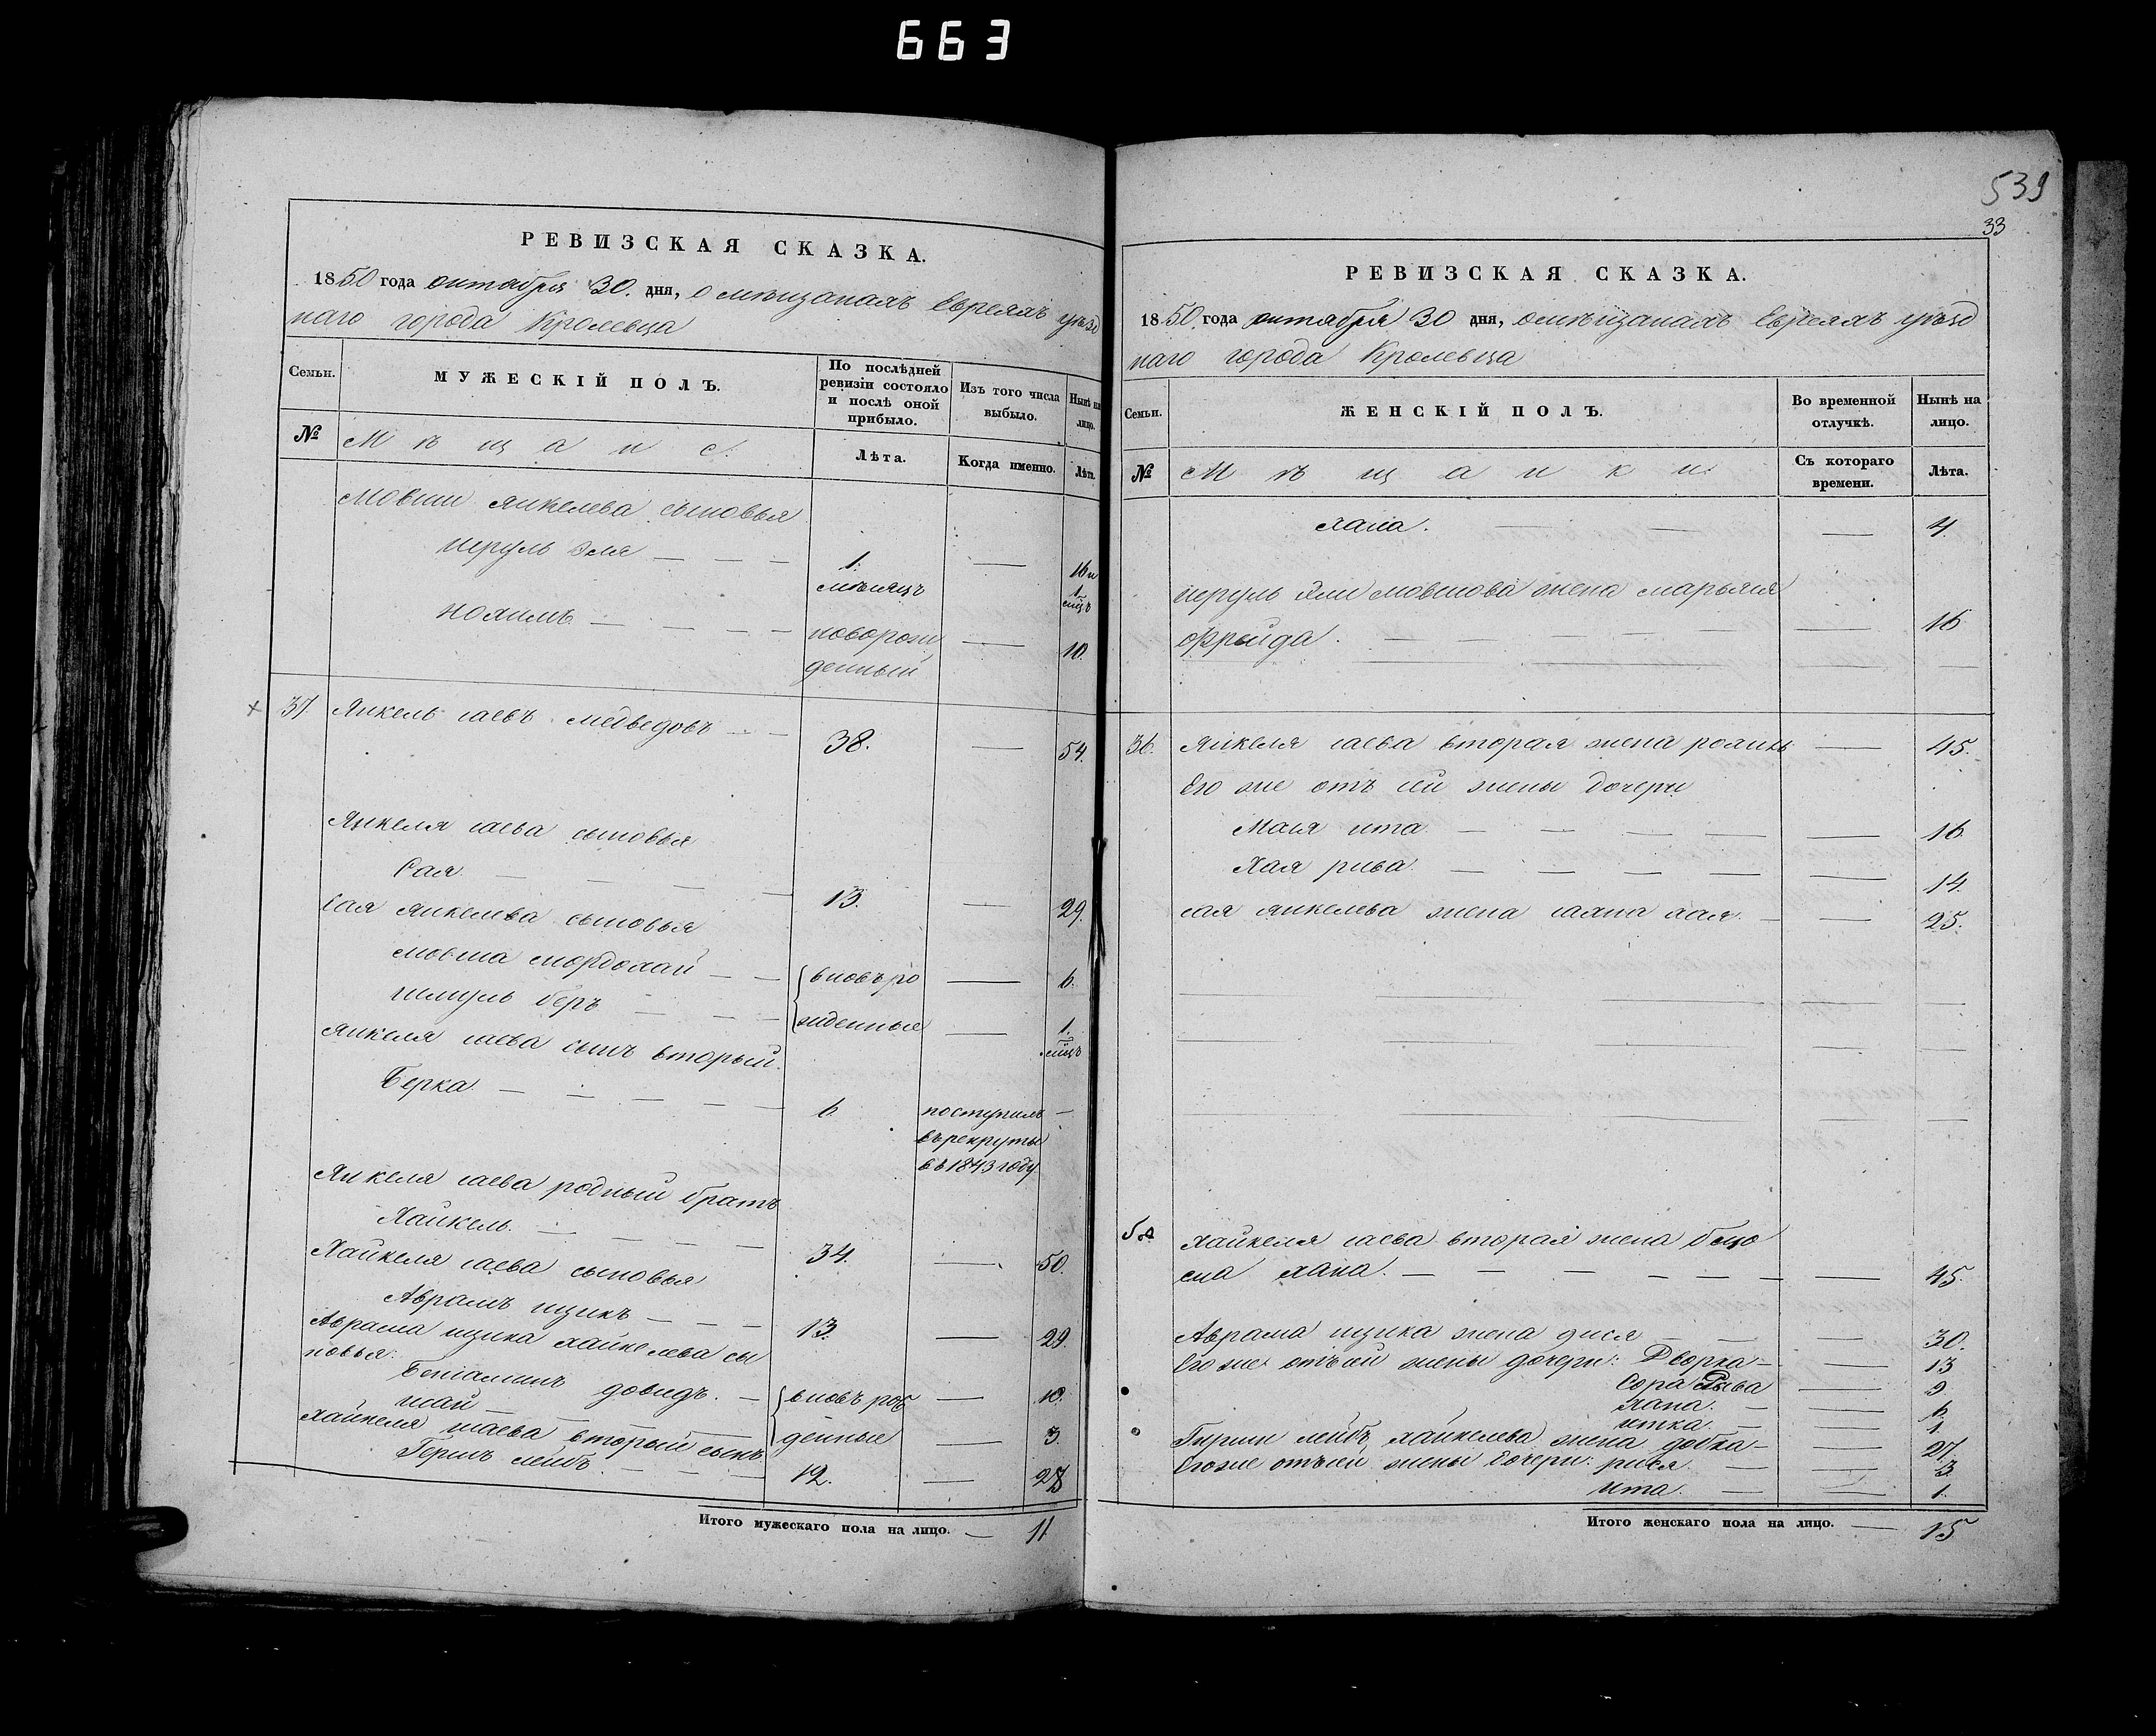 663
РЕВИЗСКАЯ СКАЗКА.
1850 года октября 30. дня, о мѣщанахъ Евреяхъ уѣзд
наго города Кролевца
Семьи.
МУЖЕСКІЙ ПОЛЪ.
По послѣдней
ревизіи состояло
и послѣ оной
прибыло.
Изъ того числа
выбыло.
Нынѣ на
лицо.
№
Мѣщане.
Лѣта.
Когда именно.
Лѣта.
Мовши Янкелева сыновья
Эля — — — 1. мѣсяцъ — 16 и 1 мѣц
— — — — новорож — 10.
денный
37 Янкель Медведовъ — — 38. — 54.
Янкеля сыновья
— — — — 13. — 29.
Янкелева сыновья
Мовша Мордохай — — вновь ро — 6.
Шмуль Беръ — — — жденные — 1. мѣц
Янкеля сынъ вторый.
Берка. — — — — — 6 поступилъ —
въ рекруты
въ 1843 году
Янкеля родный братъ
Хайкель. — — — — 34. — 50.
Хайкеля сыновья
Аврамъ ицикъ — — — 13. — 29.
Аврама ицика хайкелева сы
новья:
Беніаминъ довидъ. — вновь рож — 10.
— денные — 3.
Хайкеля вторый сынъ
Гершъ лейбъ. — — — 12. — 28
Итого мужескаго пола на лицо. — 11
539
33
РЕВИЗСКАЯ СКАЗКА.
1850. года октября 30 дня, о мѣщанахъ Евреяхъ уѣзд
наго города Кролевца
Семьи.
ЖЕНСКІЙ ПОЛЪ.
Во временной
отлучкѣ.
Нынѣ на
лицо.
№
Мѣщанки.
Съ котораго
времени.
Лѣта.
Хана. — — — 4.
Эли мовшова жена марьяся
фрейда. — — — — — 16
36. Янкеля вторая жена — 45.
Его же отъ сей жены дочери
Мася ита — — — — — 16.
Хая рива. — — — — — 14.
янкелева жена хая. — — 25.
58. Хайкеля вторая жена
хана. — — — — — — — 45.
Аврама ицика жена — — — 30.
Его же отъ сей жены дочери: Дворка — — 13
Сора Рыва — 9.
Хана. — — 6.
итка — — 1
Гирши лейбъ хайкелева жена добка — — 27.
Его же отъ сей жены дочери: — — 3.
ита. — — 1.
Итого женскаго пола на лицо. — 15